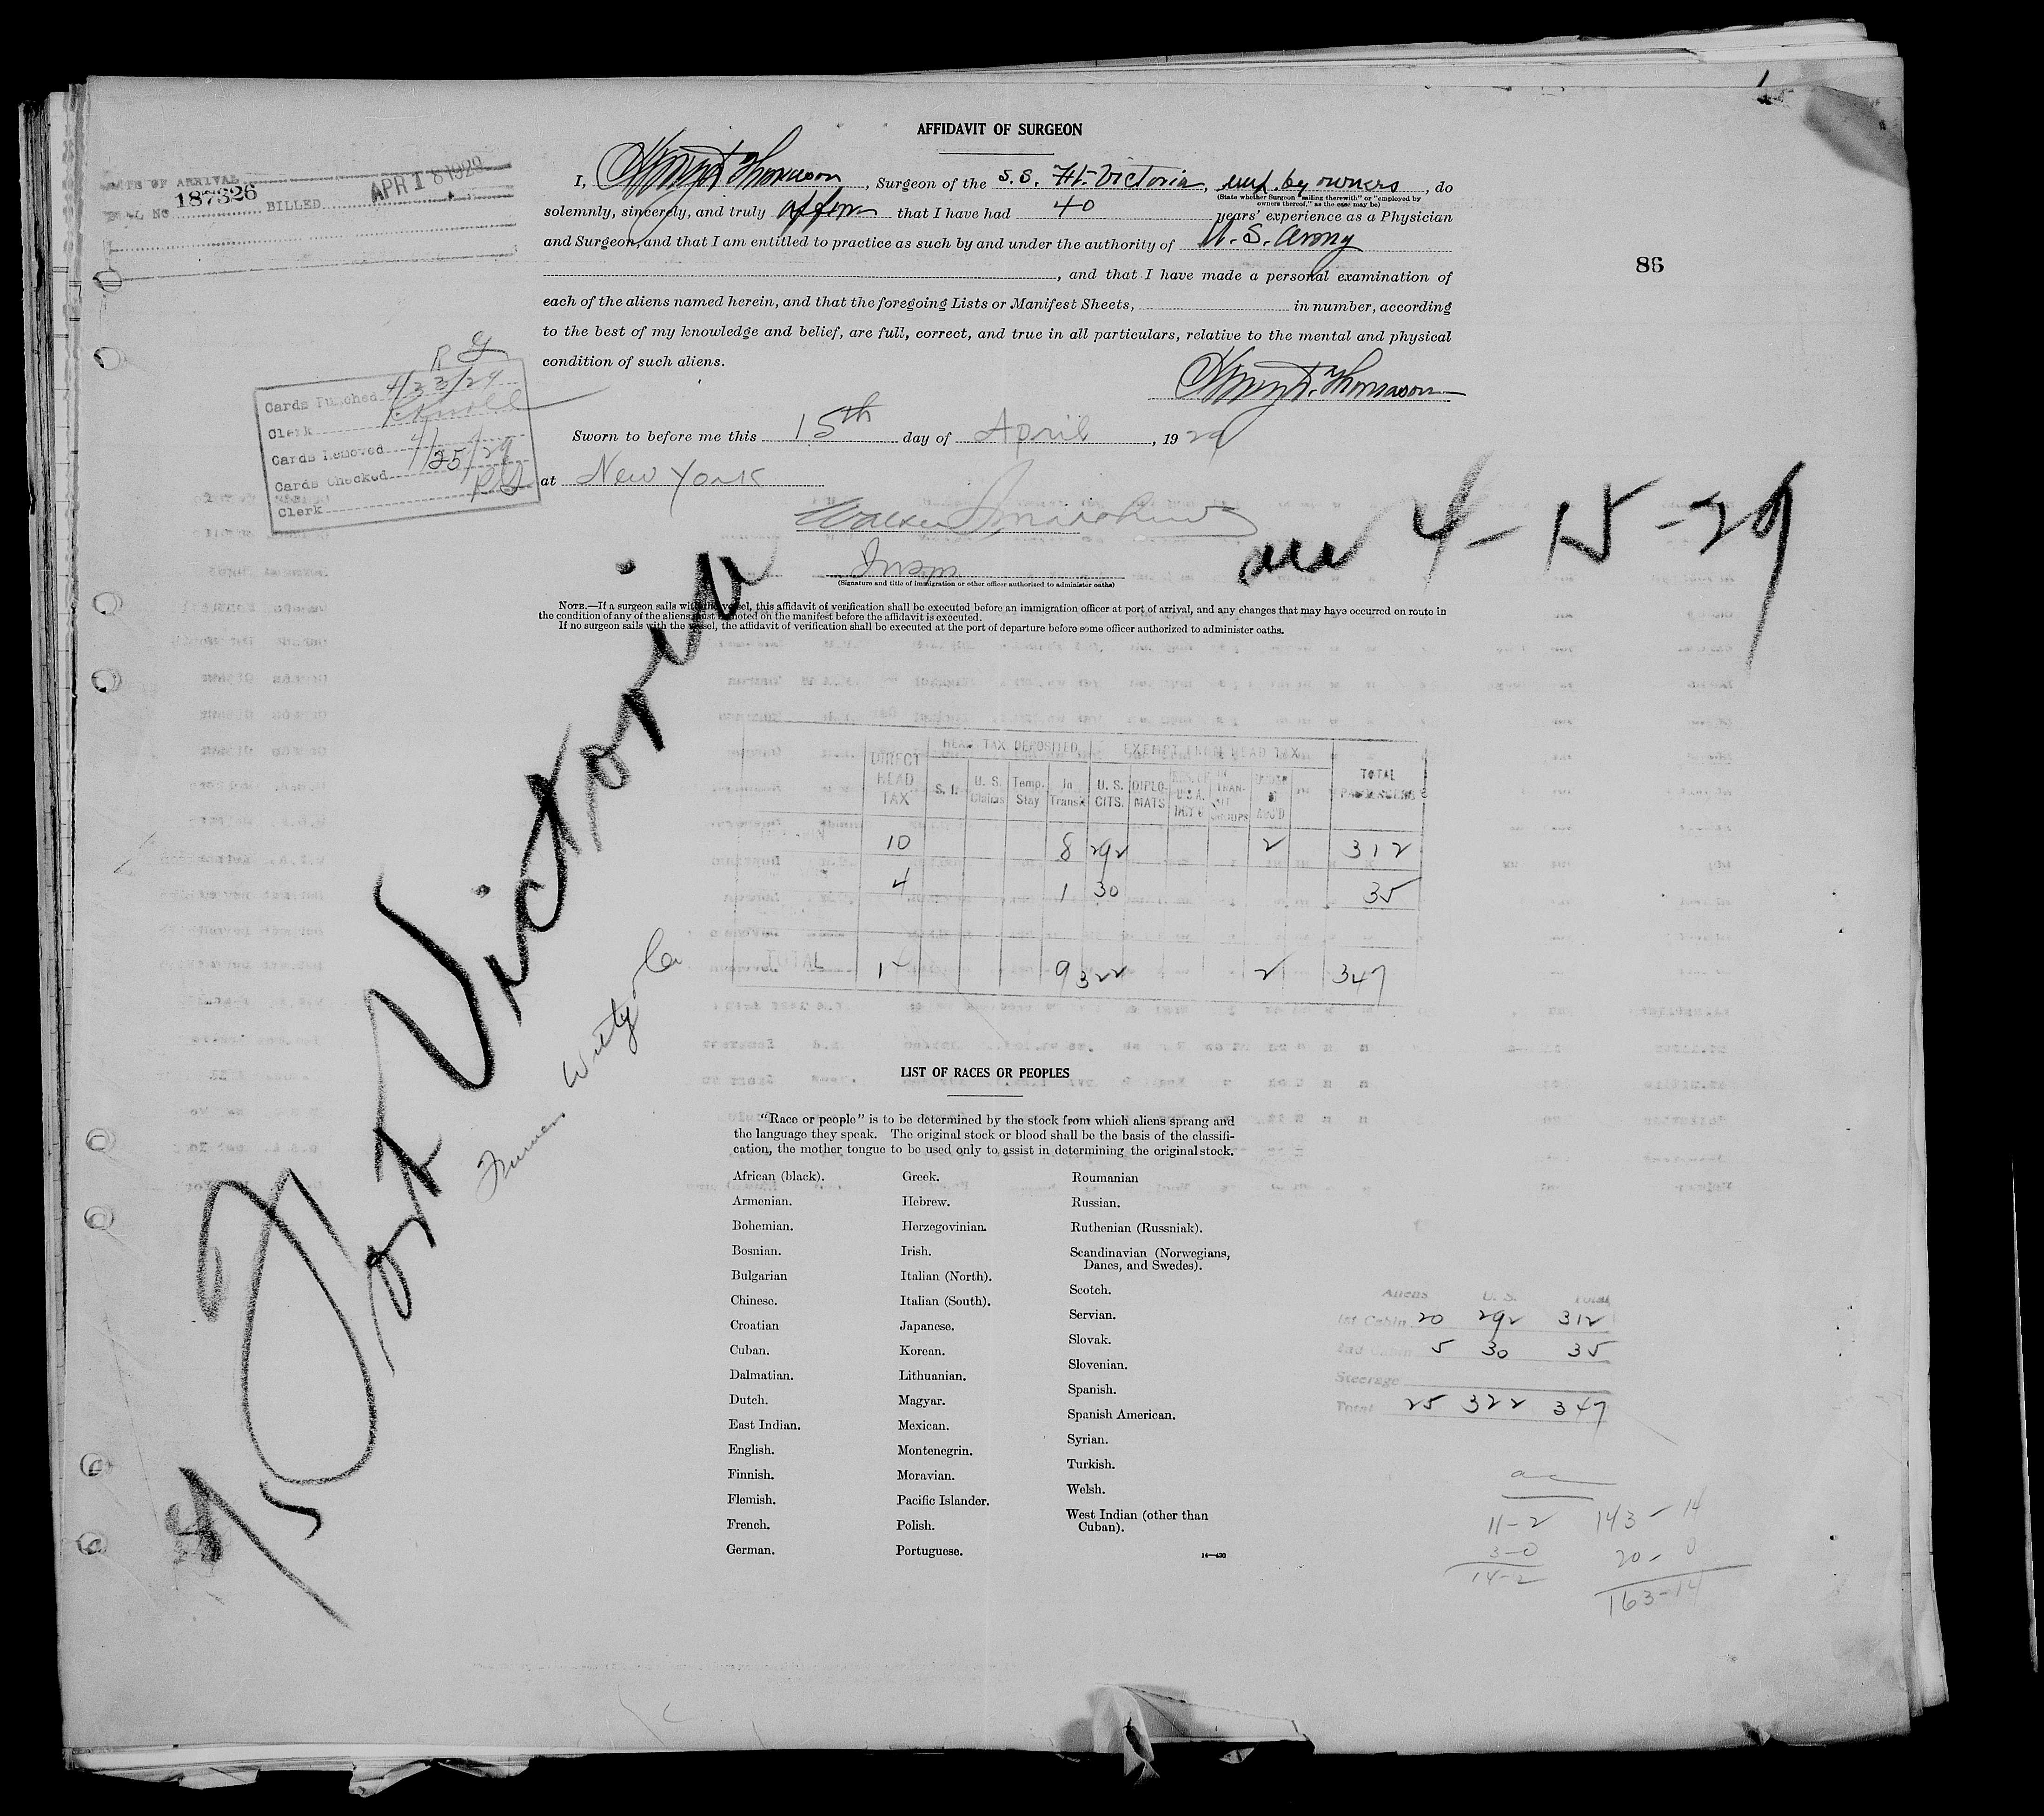 1
AFFIDAVIT OF SURGEON
DATE OF ARRIVAL
187326 BILLED APR 18 1929
I, Henry D. Thomason, Surgeon of the S.S. Ft. Victoria, emp. by owners, do
(State whether Surgeon "sailing therewith" or "employed by
owners thereof," as the case may be)
solemnly, sincerely, and truly affirm that I have had 40 years' experience as a Physician
and Surgeon, and that I am entitled to practice as such by and under the authority of U. S. Army
, and that I have made a personal examination of
86
each of the aliens named herein, and that the foregoing Lists or Manifest Sheets, in number, according
to the best of my knowledge and belief, are full, correct, and true in all particulars, relative to the mental and physical
condition of such aliens.
Henry D. Thomason
Cards Punched 4/23/29
Clerk
Cards Removed
Cards Checked 4/25/29
Clerk
Sworn to before me this 15th day of April, 1929
at New York
Insp
(Signature and title of immigration or other officer authorized to administer oaths)
4-15-29
NOTE.—If a surgeon sails with the vessel, this affidavit of verification shall be executed before an immigration officer at port of arrival, and any changes that may have occurred en route in
the condition of any of the aliens must be noted on the manifest before the affidavit is executed.
If no surgeon sails with the vessel, the affidavit of verification shall be executed at the port of departure before some officer authorized to administer oaths.
Fort Victoria
4/15
Furness Withy & Co
DIRECT HEAD TAX HEAD TAX DEPOSITED EXEMPT FROM HEAD TAX TOTAL PASSENGERS
S. I. U. S. Claims Temp. Stay In Transit U. S. CITS. DIPLO-MATS
10 8 292 2 312
4 1 30 35
TOTAL 14 9 322 2 347
LIST OF RACES OR PEOPLES
"Race or people" is to be determined by the stock from which aliens sprang and
the language they speak. The original stock or blood shall be the basis of the classifi-
cation, the mother tongue to be used only to assist in determining the original stock.
African (black).
Armenian.
Bohemian.
Bosnian.
Bulgarian
Chinese.
Croatian
Cuban.
Dalmatian.
Dutch.
East Indian.
English.
Finnish.
Flemish.
French.
German.
Greek.
Hebrew.
Herzegovinian.
Irish.
Italian (North).
Italian (South).
Japanese.
Korean.
Lithuanian.
Magyar.
Mexican.
Montenegrin.
Moravian.
Pacific Islander.
Polish.
Portuguese.
Roumanian
Russian.
Ruthenian (Russniak).
Scandinavian (Norwegians,
Danes, and Swedes).
Scotch.
Servian.
Slovak.
Slovenian.
Spanish.
Spanish American.
Syrian.
Turkish.
Welsh.
West Indian (other than
Cuban).
14—430
Aliens U. S. Total
1st Cabin 20 292 312
2nd Cabin 5 30 35
Steerage
Total 25 322 347
11-2 143-14
3-0 20-0
14-2 163-14